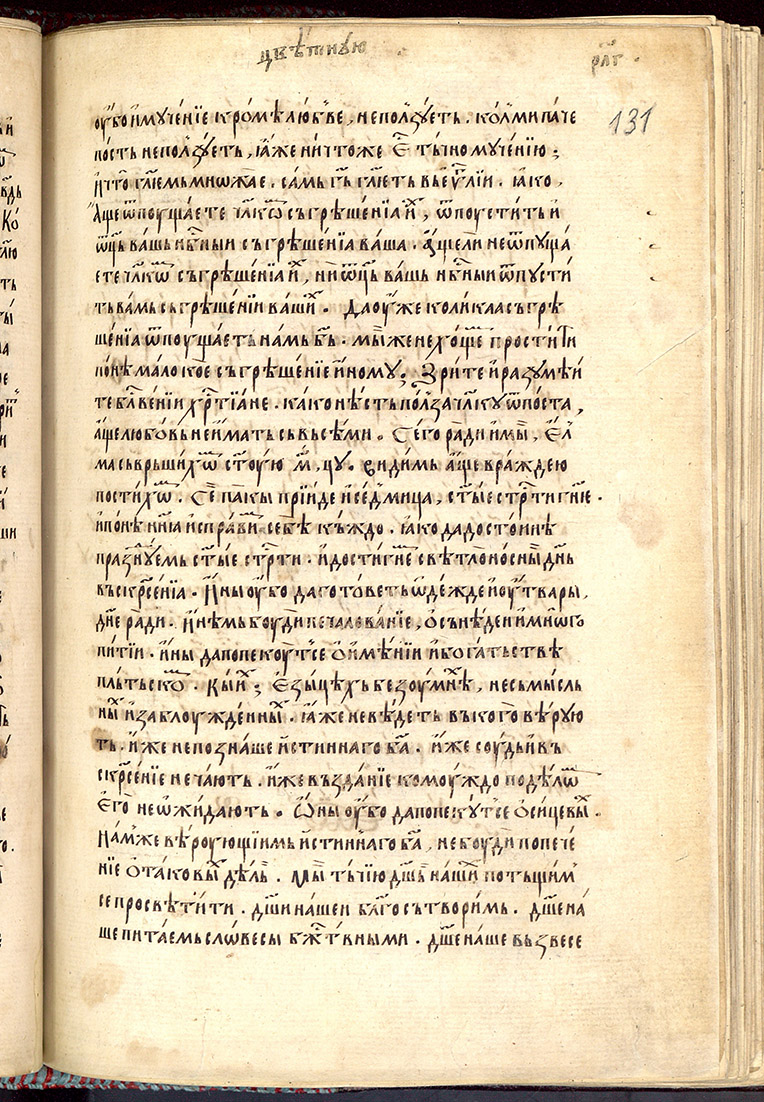 цвѣтную
рл҃г
131
оу҆́бо и҆ муче́нїе кромѣ любве, не по́лꙁꙋеть. колми па́че
по́сть не по́лꙁꙋеть, ꙗ҆́же ничто́же є҆́сть тъ́чно муче́нїю;
и҆ что̀ гл҃емь мно́жае. са́мь гь҃ гл҃еть въ еѵⷢ҇лїи. ꙗ҆ко,
А҆́ще ѿпоуща́ете чл҃кѡⷨ съгрѣше́нїа и҆ⷯ, ѿпⸯу́стить и
ѿц҃ь ва́шь нбⷭ҇ныи съгрѣше́нїа ва́ша. а҆́ще ли не ѿпꙋща́
ете чл҃кѡⷨ съгрѣше́нїа и҆ⷯ, ни ѿц҃ь ва́шь нбⷭ҇ныи ѿпусти́
ть ва́мь съгрѣше́нїи ва́шиⷯ. Да оу҆́же коли́каа съгрѣ
ше́нїа ѿпоуща́еть на́мь бь҃. мы́ же не хо́щеⷨ прости́ти
понѣ ма́ло кое съгрѣше́нїе и҆но́му; Зри́те и҆ раꙁꙋмѣ́и
те блⷭ҇ве́нїи хрⷭ҇тїа́не. ка́ко нѣ́сть по́лꙁа чл҃ку ѿ поста̀,
а҆́ще любо́вь не и҆́мать съ въсѣ́ми. Сего̀ ра́ди и҆ мы̀, є҆л
ма съврьши́хѡⷨ ст҃ою м҃, цꙋ. ви́димь а҆́ще враждею
пости́хѡⷨ. Се́ па́кы прїи́де и҆ се́дмица, ст҃ые стрⷭ҇ти гн҃ие.
и҆ понѣ нн҃ꙗ и҆спра́ви себѐ къ́ждо. ꙗ҆ко да досто́инѣ
пра́ꙁнꙋемь ст҃ые стрⷭ҇ти. и҆ дости́гнеⷨ свѣтлоно́сны дн҃ь
въскрⷭ҇се́нїа. И҆́ны оу҆́бо да гото́веть ѡ҆де́жде и҆ оу҆́твары,
дн҃е ра́ди. И҆нѣ́мь боуди печалова́нїе, о҆ сънѣ́ден и҆ мно́го
пи́тїи. и҆́ны да попекоу́тсе о҆ и҆мѣ́нїи и҆ бога́тьствѣ
плъ́тьскоⷨ. Кы́иⷯ; є҆ꙁы́цѣхь беꙁоу́мнїⷯ, несъмысль
ныⷯ и҆ ꙁаблоужде́нныⷯ. ꙗ҆́же не вѣ́деть въ кого̀ вѣ́рую
ть. и҆́же не поꙁна́ше и҆́стиннаго ба҃. и҆́же соу́дьи въ
скрⷭ҇се́нїе не ча́ють. и҆́же въꙁда́нїе комоу́ждо по дѣ́лѡⷨ
є҆го̀ не ѡ҆жида́ють. Ѻ҆́ны оу҆́бо да попеку́тсе о҆ сицевы́иⷯ.
На́мже вѣ́роующїимь и҆́стиннаго ба҃, не боу́ди попече́
нїе о҆ такокы́ⷯ дѣ́ль. Мы̀ тъ́чїю дш҃ь на́шиⷯ потъщимⷭ҇
се просвѣти́ти. дш҃и на́шеи бл҃го сътвори́мь. дш҃е на́
ше пита́емь сло́весы бжⷭ҇твными. дш҃е на́ше въꙁвесе